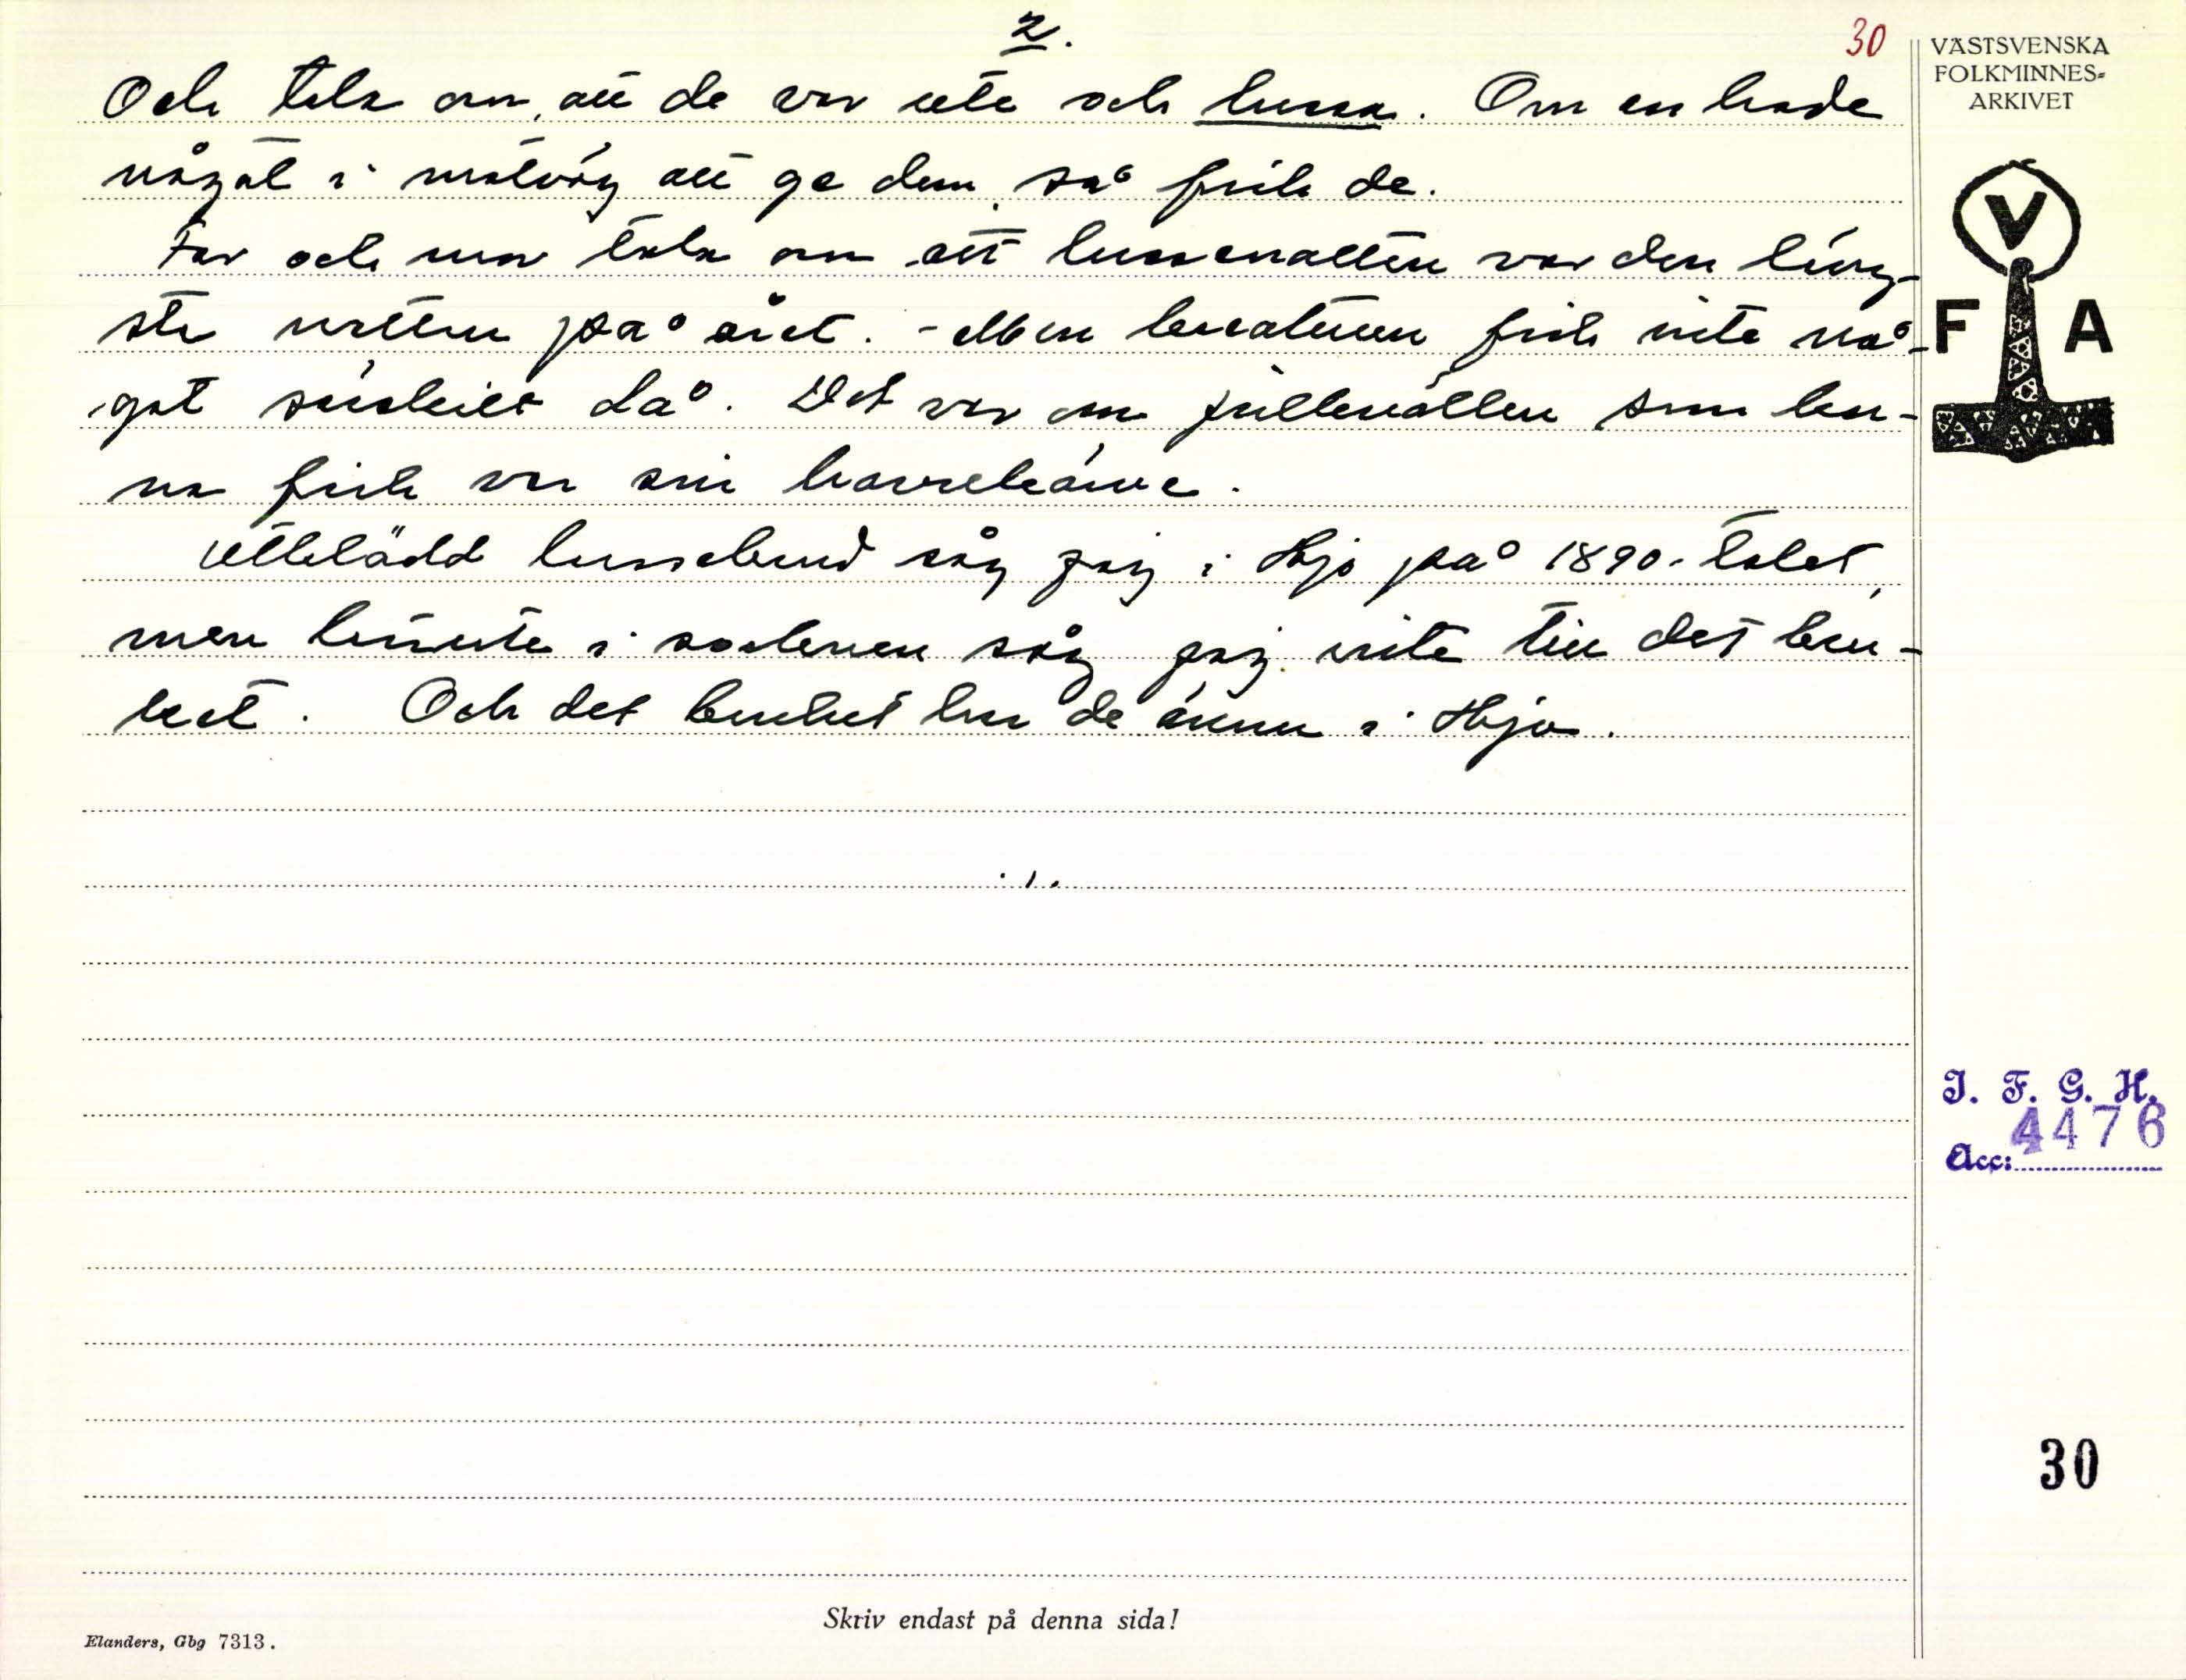 2.
30
VÄSTSVENSKA
FOLKMINNES-
ARKIVET
Och tala om, att de var ute och lussa. Om en hade
något i matväg att ge dem, så fick de.
Far och mor tala om att lussenatten var den läng-
sta natten på året. - Men kreaturen fick inte nå-
got särskilt då. Det var om julkvällen som
fick var sin havrekärve.
Utklädd lussebrud såg jag i Hjo på 1890-talet,
men hemma i socknen såg jag inte till det bru-
ket. Och det bruket har de ännu i Hjo.
V F A
I. F. G. H.
Acc: 4476
30
Skriv endast på denna sida!
Elanders, Gbg 7313.